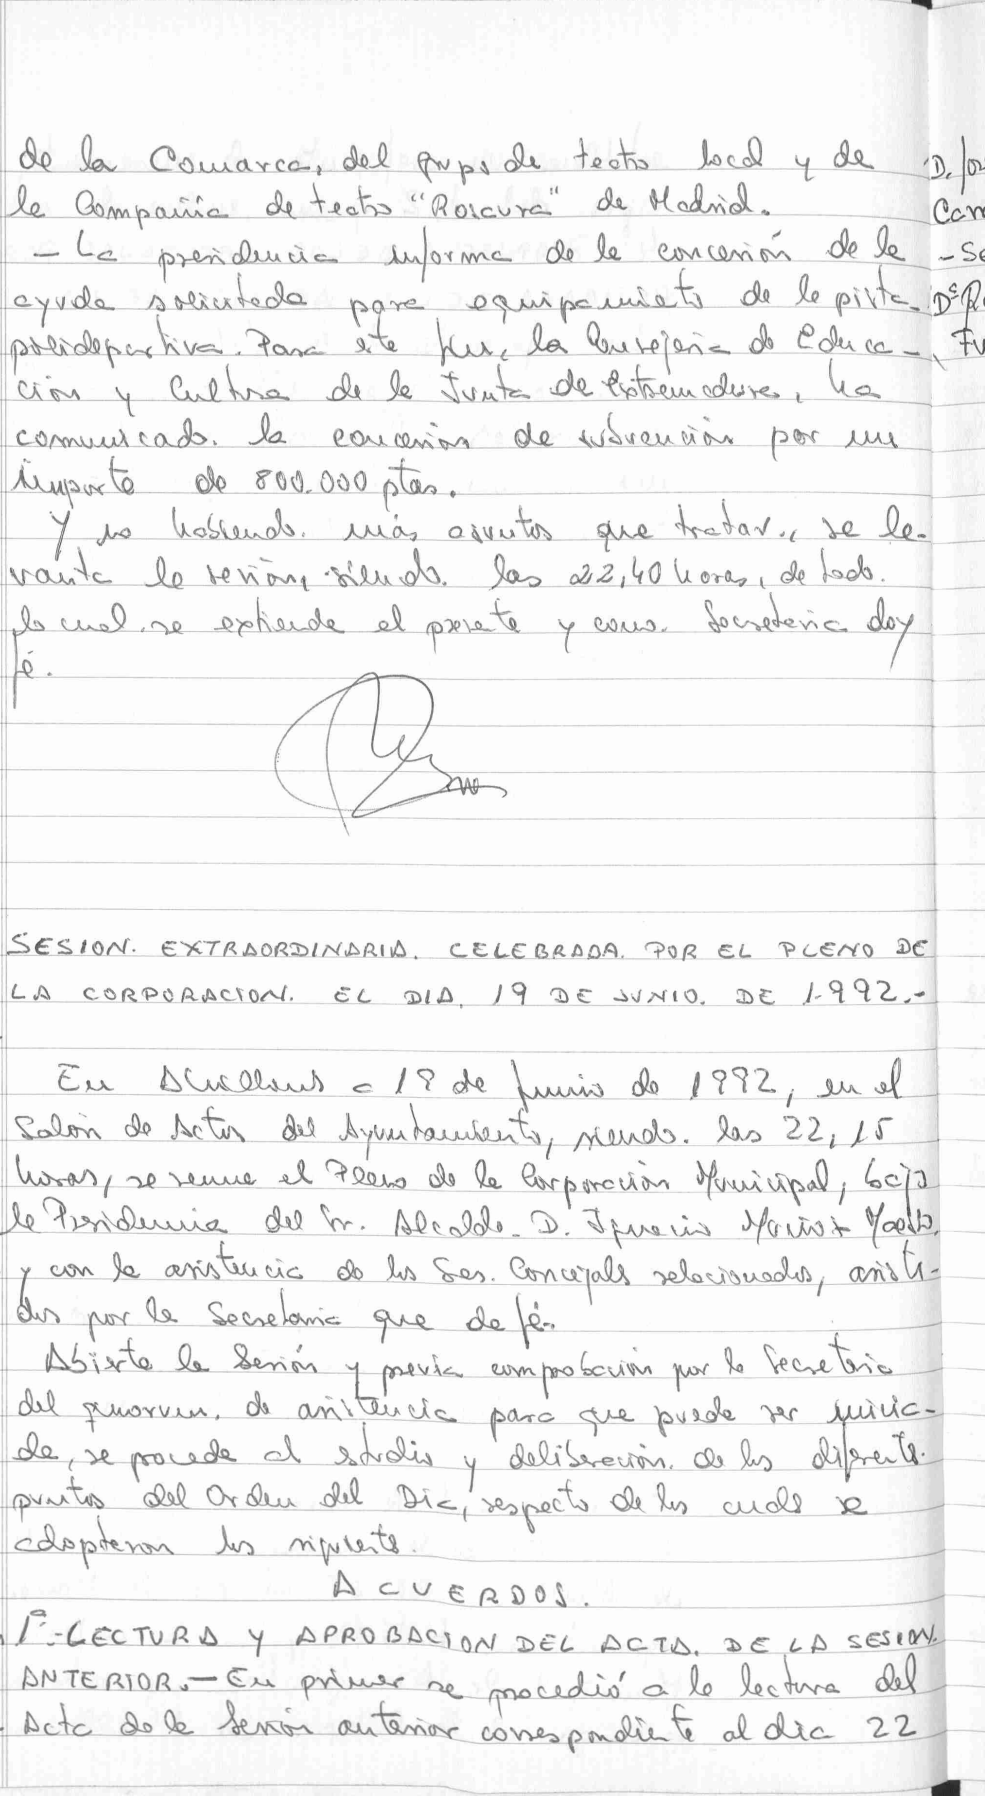 de la Comarca, del grupo de teatro local y de
la Compañía de teatro "Roscura" de Madrid.
- La presidencia informa de la concesión de la
ayuda solicitada para equipamiento de la pista
polideportiva. Para este fin, la Consejería de Educa-
ción y Cultura de la Junta de Extremadura, ha
comunicado. la concesión de subvención por un
importe de 800.000 ptas.
Y no habiendo. más asuntos que tratar., se le-
vanta la sesión, siendo. las 22,40 horas, de todo.
lo cual. se extiende el presente y como. Secretaria doy
fé.
SESION. EXTRAORDINARIA. CELEBRADA. POR EL PLENO DE
LA CORPORACION. EL DIA, 19 DE JUNIO. DE 1.992.-
En a 19 de Junio de 1992, en el
Salón de Actos del Ayuntamiento, siendo. las 22,15
horas, se reune el Pleno de la Corporación Municipal, bajo
la Presidencia del Sr. Alcalde. D. Ignacio
y con la asistencia de los Sres. Concejals relacionados, asisti-
dos por la Secretaria que da fé.
Abierta la Sesión y previa comprobación por la Secretaria
del quorum. de asistencia para que pueda ser inicia-
da, se procede al estudio y deliberación. de los diferents.
puntos del Orden del Dia, respecto de los cuals se
adoptaron los siguients.
ACUERDOS.
1º.-LECTURA Y APROBACION DEL ACTA. DE LA SESION.
ANTERIOR.- En primer se procedió a la lectura del
Acta de la Sesión anterior correspondiente al dia 22
D.
Cam
- Se
Fu